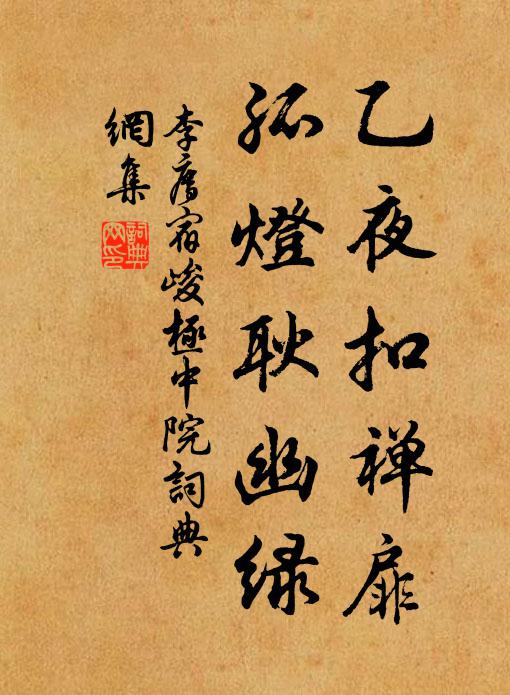 乙夜扣禅扉
孤燈耿幽绿
李廌宿峻極中院詞典
網集
詞典網印